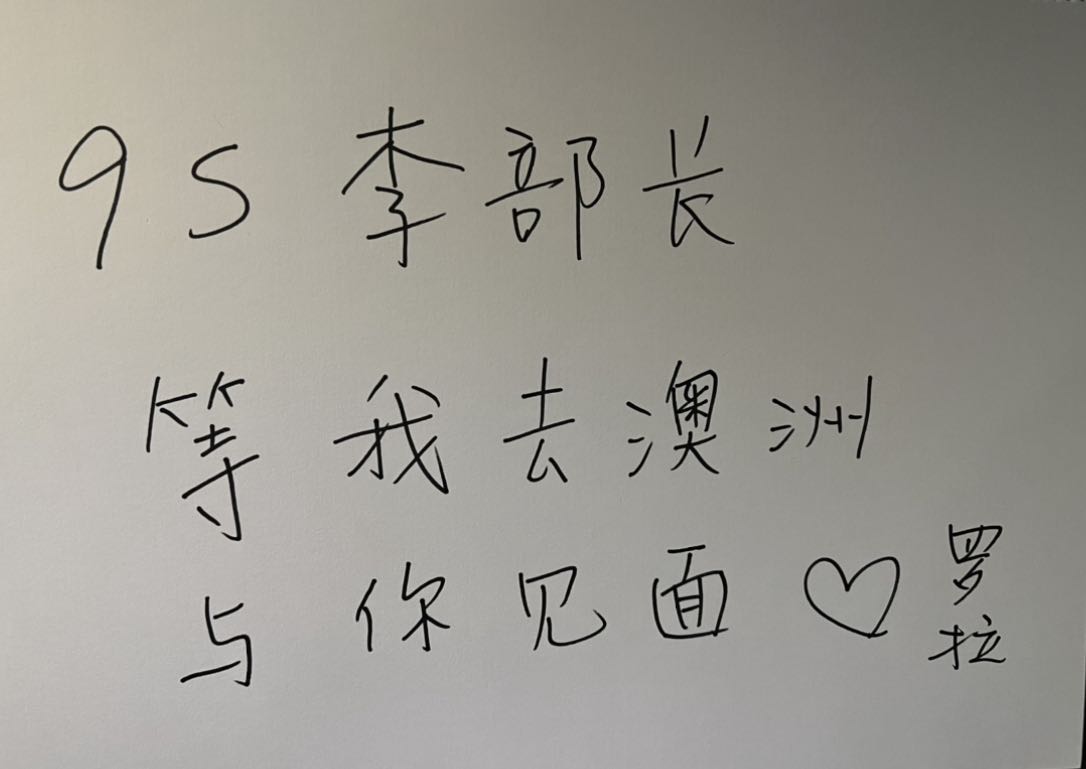 9S 李部长
等我去澳洲
与你见面♡罗拉